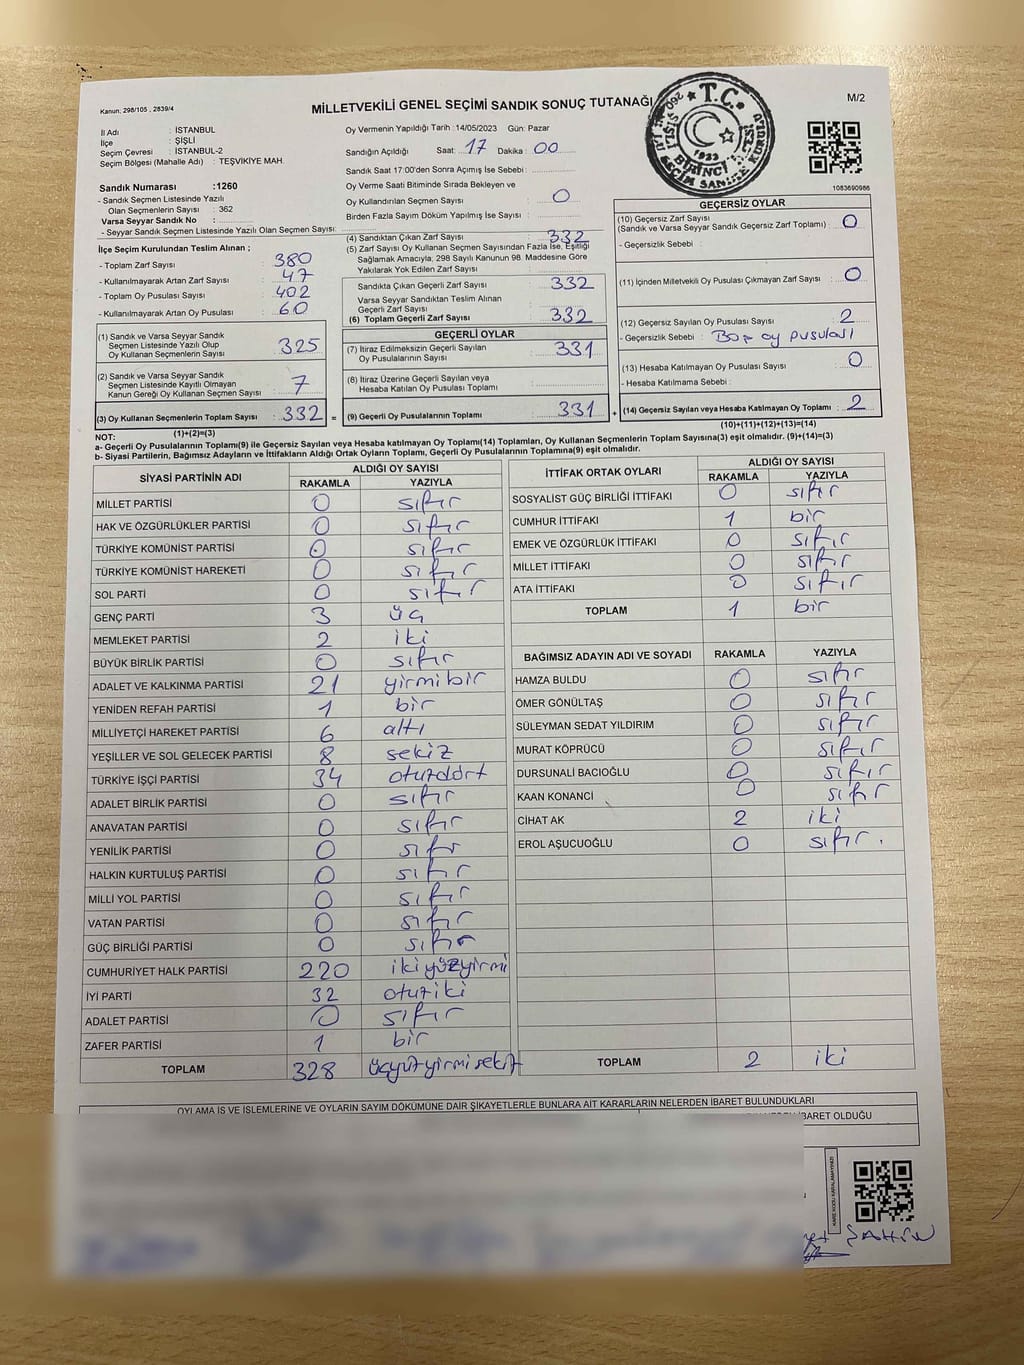 Kanun: 298/105 , 2839/4
MİLLETVEKİLİ GENEL SEÇİMİ SANDIK SONUÇ TUTANAĞI
M/2
İl Adı : İSTANBUL
İlçe : ŞİŞLİ
Seçim Çevresi : İSTANBUL-2
Seçim Bölgesi (Mahalle Adı) : TEŞVİKİYE MAH.
Sandık Numarası :1260
- Sandık Seçmen Listesinde Yazılı
Olan Seçmenlerin Sayısı : 362
Varsa Seyyar Sandık No :
- Seyyar Sandık Seçmen Listesinde Yazılı Olan Seçmen Sayısı:
Oy Vermenin Yapıldığı Tarih :14/05/2023 Gün: Pazar
Sandığın Açıldığı Saat: 17 Dakika : 00
Sandık Saat 17:00'den Sonra Açımış İse Sebebi :
Oy Verme Saati Bitiminde Sırada Bekleyen ve
Oy Kullandırılan Seçmen Sayısı : 0
Birden Fazla Sayım Döküm Yapılmış İse Sayısı :
T.C.
ŞİŞLİ BİRİNCİ
1923
1083690986
İlçe Seçim Kurulundan Teslim Alınan ;
- Toplam Zarf Sayısı : 380
- Kullanılmayarak Artan Zarf Sayısı : 47
- Toplam Oy Pusulası Sayısı : 402
- Kullanılmayarak Artan Oy Pusulası : 60
(1) Sandık ve Varsa Seyyar Sandık
Seçmen Listesinde Yazılı Olup
Oy Kullanan Seçmenlerin Sayısı : 325
(2) Sandık ve Varsa Seyyar Sandık
Seçmen Listesinde Kayıtlı Olmayan
Kanun Gereği Oy Kullanan Seçmen Sayısı : 7
(3) Oy Kullanan Seçmenlerin Toplam Sayısı : 332 =
(1)+(2)=(3)
(4) Sandıktan Çıkan Zarf Sayısı : 332
(5) Zarf Sayısı Oy Kullanan Seçmen Sayısından Fazla İse, Eşitliği
Sağlamak Amacıyla; 298 Sayılı Kanunun 98. Maddesine Göre
Yakılarak Yok Edilen Zarf Sayısı :
Sandıkta Çıkan Geçerli Zarf Sayısı : 332
Varsa Seyyar Sandıktan Teslim Alınan
Geçerli Zarf Sayısı :
(6) Toplam Geçerli Zarf Sayısı : 332
GEÇERLİ OYLAR
(7) İtiraz Edilmeksizin Geçerli Sayılan
Oy Pusulalarının Sayısı : 331
(8) İtiraz Üzerine Geçerli Sayılan veya
Hesaba Katılan Oy Pusulası Toplamı :
(9) Geçerli Oy Pusulalarının Toplamı : 331 +
GEÇERSİZ OYLAR
(10) Geçersiz Zarf Sayısı
(Sandık ve Varsa Seyyar Sandık Geçersiz Zarf Toplamı) : 0
- Geçersizlik Sebebi :
(11) İçinden Milletvekili Oy Pusulası Çıkmayan Zarf Sayısı : 0
(12) Geçersiz Sayılan Oy Pusulası Sayısı : 2
- Geçersizlik Sebebi : Boş oy pusulası
(13) Hesaba Katılmayan Oy Pusulası Sayısı : 0
- Hesaba Katılmama Sebebi :
(14) Geçersiz Sayılan veya Hesaba Katılmayan Oy Toplamı : 2
(10)+(11)+(12)+(13)=(14)
NOT:
a- Geçerli Oy Pusulalarının Toplamı(9) ile Geçersiz Sayılan veya Hesaba katılmayan Oy Toplamı(14) Toplamları, Oy Kullanan Seçmenlerin Toplam Sayısına(3) eşit olmalıdır. (9)+(14)=(3)
b- Siyasi Partilerin, Bağımsız Adayların ve İttifakların Aldığı Ortak Oyların Toplamı, Geçerli Oy Pusulalarının Toplamına(9) eşit olmalıdır.
SİYASİ PARTİNİN ADI ALDIĞI OY SAYISI
RAKAMLA YAZIYLA
MİLLET PARTİSİ 0 sıfır
HAK VE ÖZGÜRLÜKLER PARTİSİ 0 sıfır
TÜRKİYE KOMÜNİST PARTİSİ 0 sıfır
TÜRKİYE KOMÜNİST HAREKETİ 0 sıfır
SOL PARTİ 0 sıfır
GENÇ PARTİ 3 üç
MEMLEKET PARTİSİ 2 iki
BÜYÜK BİRLİK PARTİSİ 0 sıfır
ADALET VE KALKINMA PARTİSİ 21 yirmibir
YENİDEN REFAH PARTİSİ 1 bir
MİLLİYETÇİ HAREKET PARTİSİ 6 altı
YEŞİLLER VE SOL GELECEK PARTİSİ 8 sekiz
TÜRKİYE İŞÇİ PARTİSİ 34 otuzdört
ADALET BİRLİK PARTİSİ 0 sıfır
ANAVATAN PARTİSİ 0 sıfır
YENİLİK PARTİSİ 0 sıfır
HALKIN KURTULUŞ PARTİSİ 0 sıfır
MİLLİ YOL PARTİSİ 0 sıfır
VATAN PARTİSİ 0 sıfır
GÜÇ BİRLİĞİ PARTİSİ 0 sıfır
CUMHURİYET HALK PARTİSİ 220 ikiyüzyirmi
İYİ PARTİ 32 otuziki
ADALET PARTİSİ 0 sıfır
ZAFER PARTİSİ 1 bir
TOPLAM 328 üçyüzyirmisekiz
İTTİFAK ORTAK OYLARI ALDIĞI OY SAYISI
RAKAMLA YAZIYLA
SOSYALİST GÜÇ BİRLİĞİ İTTİFAKI 0 sıfır
CUMHUR İTTİFAKI 1 bir
EMEK VE ÖZGÜRLÜK İTTİFAKI 0 sıfır
MİLLET İTTİFAKI 0 sıfır
ATA İTTİFAKI 0 sıfır
TOPLAM 1 bir
BAĞIMSIZ ADAYIN ADI VE SOYADI RAKAMLA YAZIYLA
HAMZA BULDU 0 sıfır
ÖMER GÖNÜLTAŞ 0 sıfır
SÜLEYMAN SEDAT YILDIRIM 0 sıfır
MURAT KÖPRÜCÜ 0 sıfır
DURSUNALİ BACIOĞLU 0 sıfır
KAAN KONANCİ 0 sıfır
CİHAT AK 2 iki
EROL AŞUCUOĞLU 0 sıfır.
TOPLAM 2 iki
OYLAMA İŞ VE İŞLEMLERİNE VE OYLARIN SAYIM DÖKÜMÜNE DAİR ŞİKAYETLERLE BUNLARA AİT KARARLARIN NELERDEN İBARET BULUNDUKLARI
İBARET OLDUĞU
KARE KODU KARALAMAYINIZ!
ŞAHİN